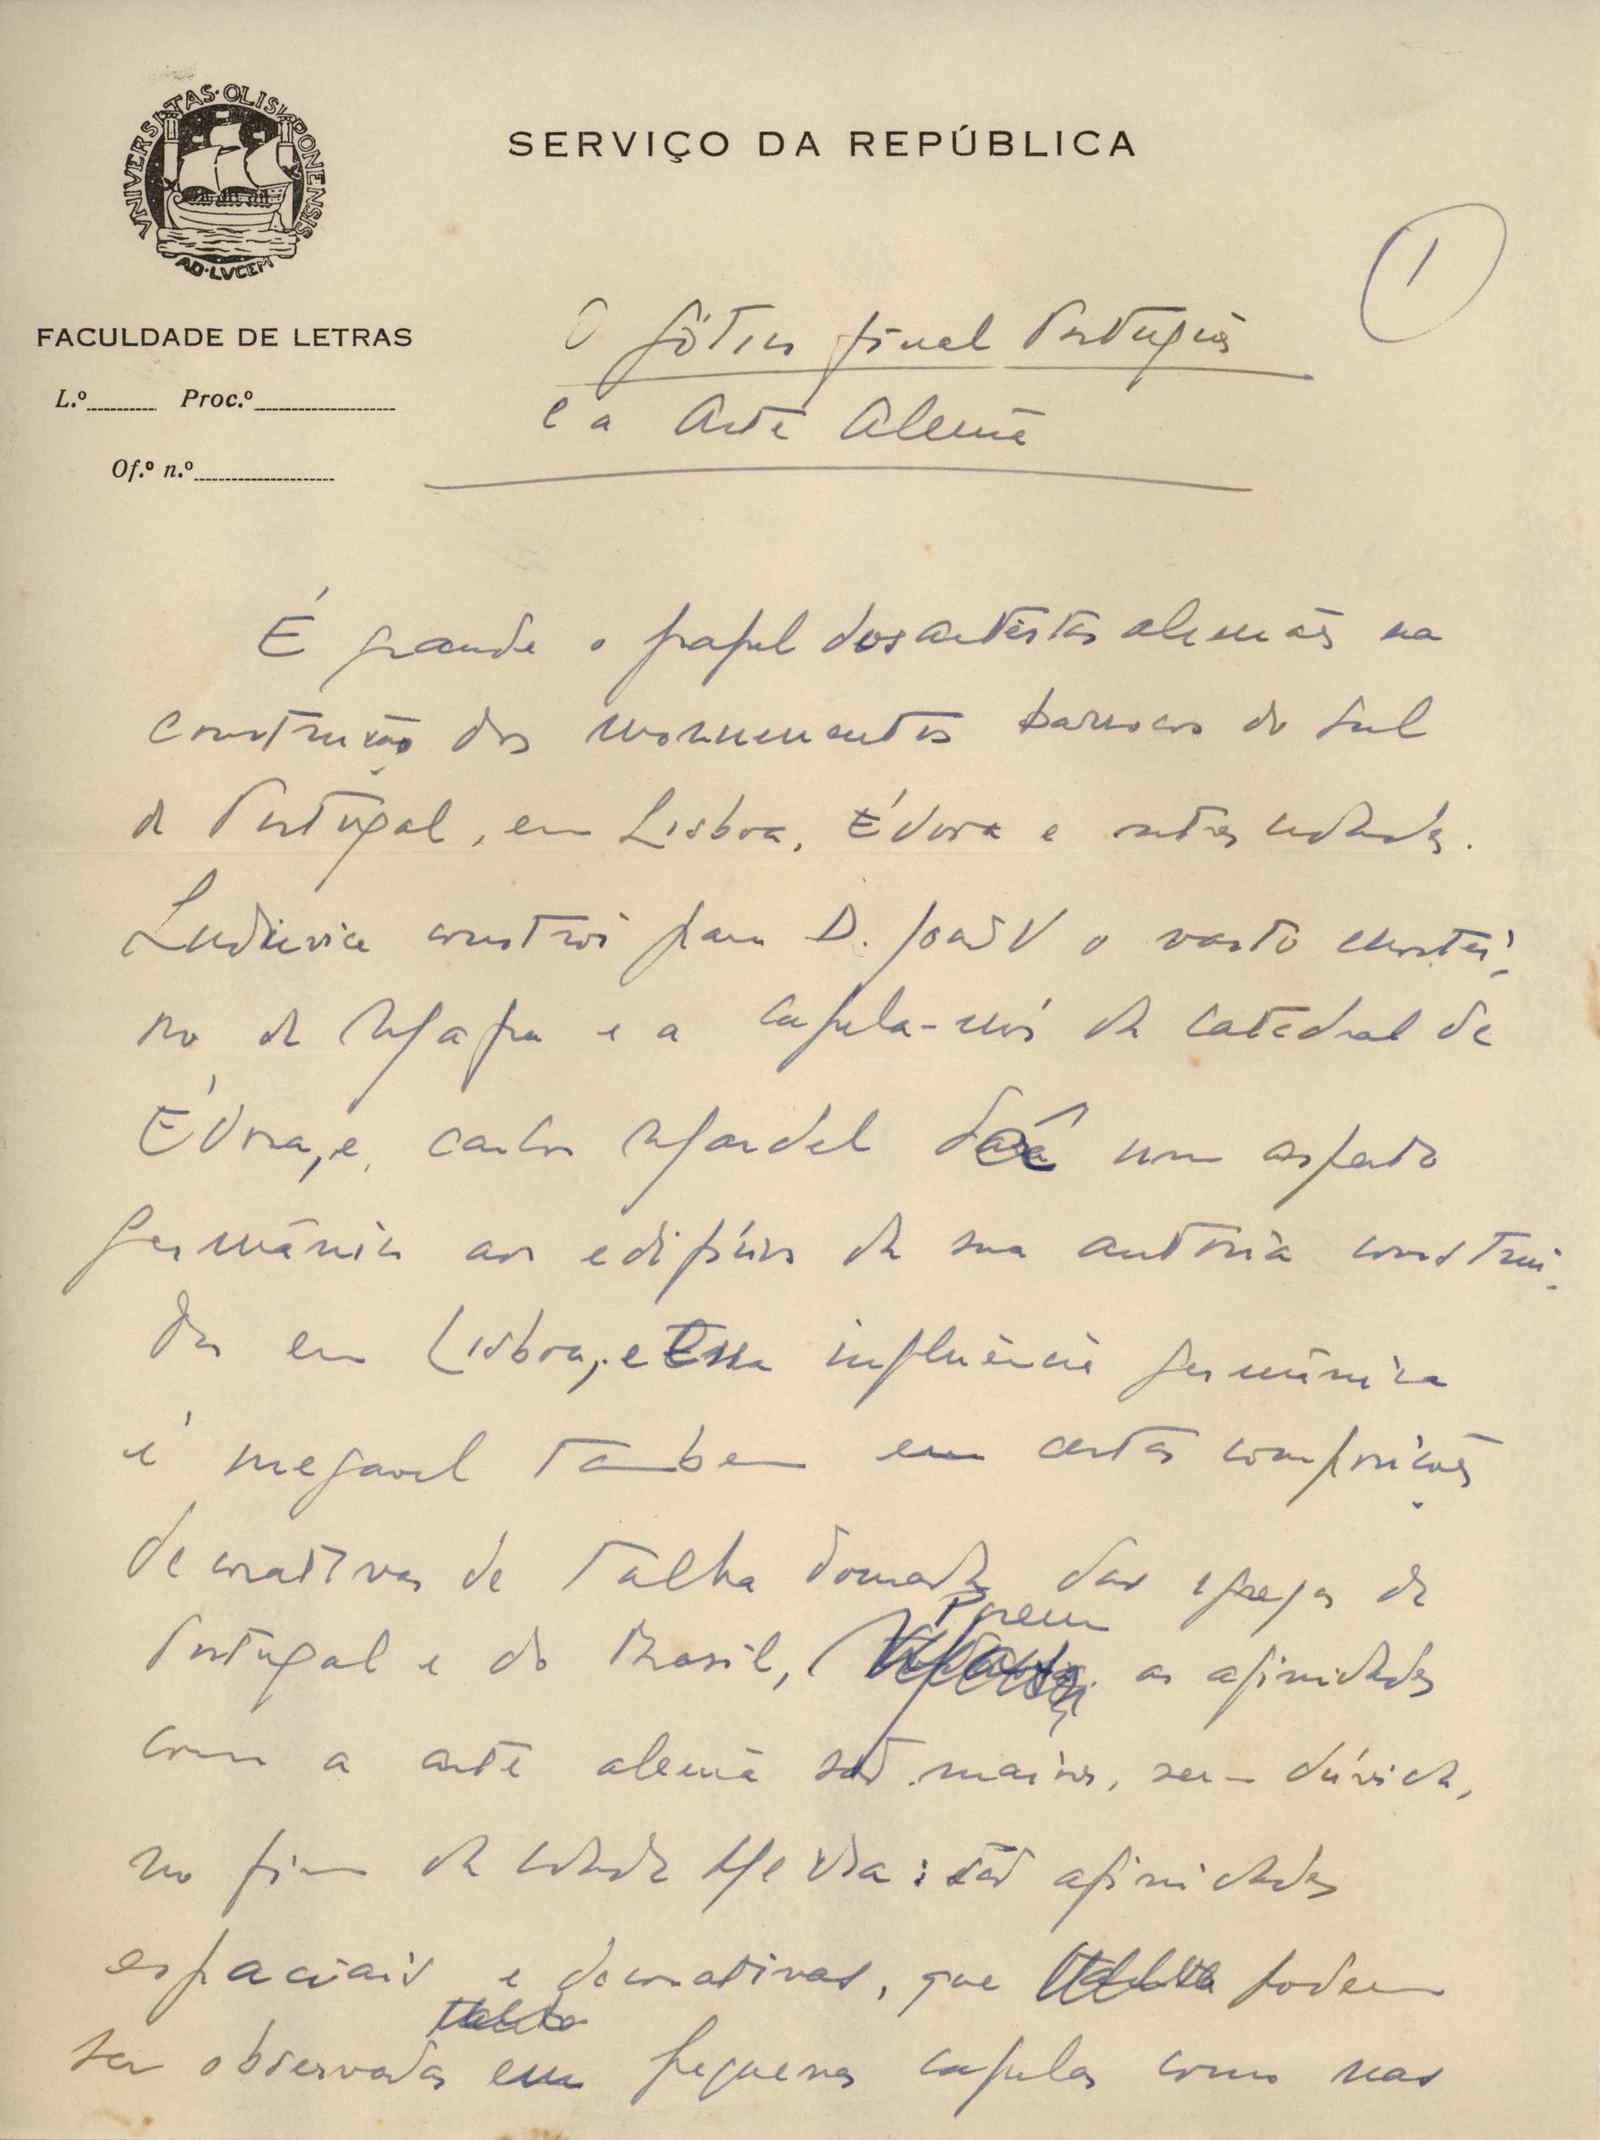 VNIVERSITAS·OLISIPONENSIS
AD·LVCEM
SERVIÇO DA REPÚBLICA
1
FACULDADE DE LETRAS
L.º Proc.º
Of.º n.º
O gótico final Português
e a Arte Alemã
É grande o papel dos artistas alemães na
construção dos monumentos barrocos do Sul
de Portugal, em Lisboa, Évora e outras cidades.
Ludovice constroi para D. João V o vasto mostei-
ro de Mafra e a capela-mór da catedral de
Évora, e Carlos Mardel dá um aspecto
germânico aos edifícios da sua autoria construi-
dos em Lisboa, e essa influência germânica
é inegavel tambem em certas composições
decorativas de talha dourada das igrejas de
Porem
Portugal e do Brasil, as afinidades
com a arte alemã são maiores, sem dúvida,
no fim da idade Media: são afinidades
espaciais e decorativas, que podem
ser observadas em pequenas capelas como nas